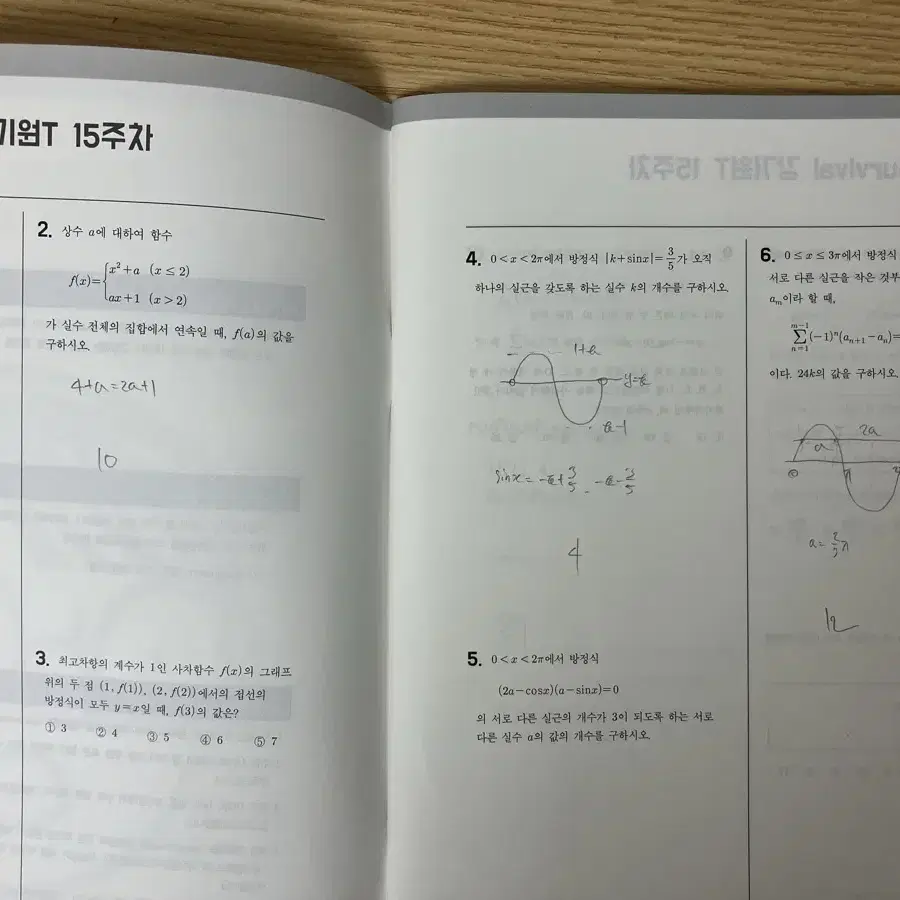 기원T 15주차
2. 상수 a에 대하여 함수
f(x)={x²+a (x≤2)
ax+1 (x>2)
가 실수 전체의 집합에서 연속일 때, f(a)의 값을
구하시오.
4+a=2a+1
10
3. 최고차항의 계수가 1인 사차함수 f(x)의 그래프
위의 두 점 (1, f(1)), (2, f(2))에서의 접선의
방정식이 모두 y=x일 때, f(3)의 값은?
① 3 ② 4 ③ 5 ④ 6 ⑤ 7
urvival 강기원T 15주차
4. 0<x<2π에서 방정식 |k+sinx|=3/5가 오직
하나의 실근을 갖도록 하는 실수 k의 개수를 구하시오.
1+k
y=k
k-1
sinx = -k+3/5, -k-3/5
4
5. 0<x<2π에서 방정식
(2a-cosx)(a-sinx)=0
의 서로 다른 실근의 개수가 3이 되도록 하는 서로
다른 실수 a의 값의 개수를 구하시오.
6. 0≤x≤3π에서 방정식
서로 다른 실근을 작은 것부
aₘ이라 할 때,
∑_{n=1}^{m-1}(-1)ⁿ(aₙ₊₁-aₙ)=
이다. 24k의 값을 구하시오.
2a
a
0 π
a=2/5π
12